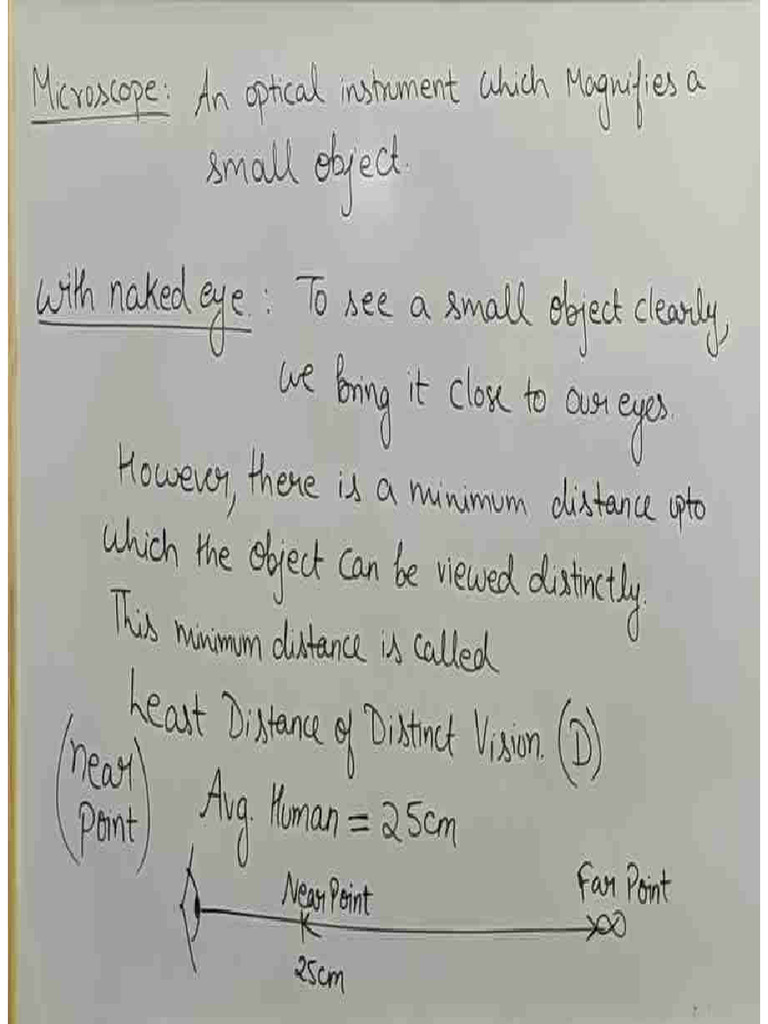 Microscope: An optical instrument which Magnifies a
small object.
With naked eye: To see a small object clearly,
we bring it close to our eyes.
However, there is a minimum distance upto
which the object can be viewed distinctly.
This minimum distance is called
Least Distance of Distinct Vision. (D)
(near
point)
Avg. Human = 25cm
Near Point
Far Point
∞
25cm